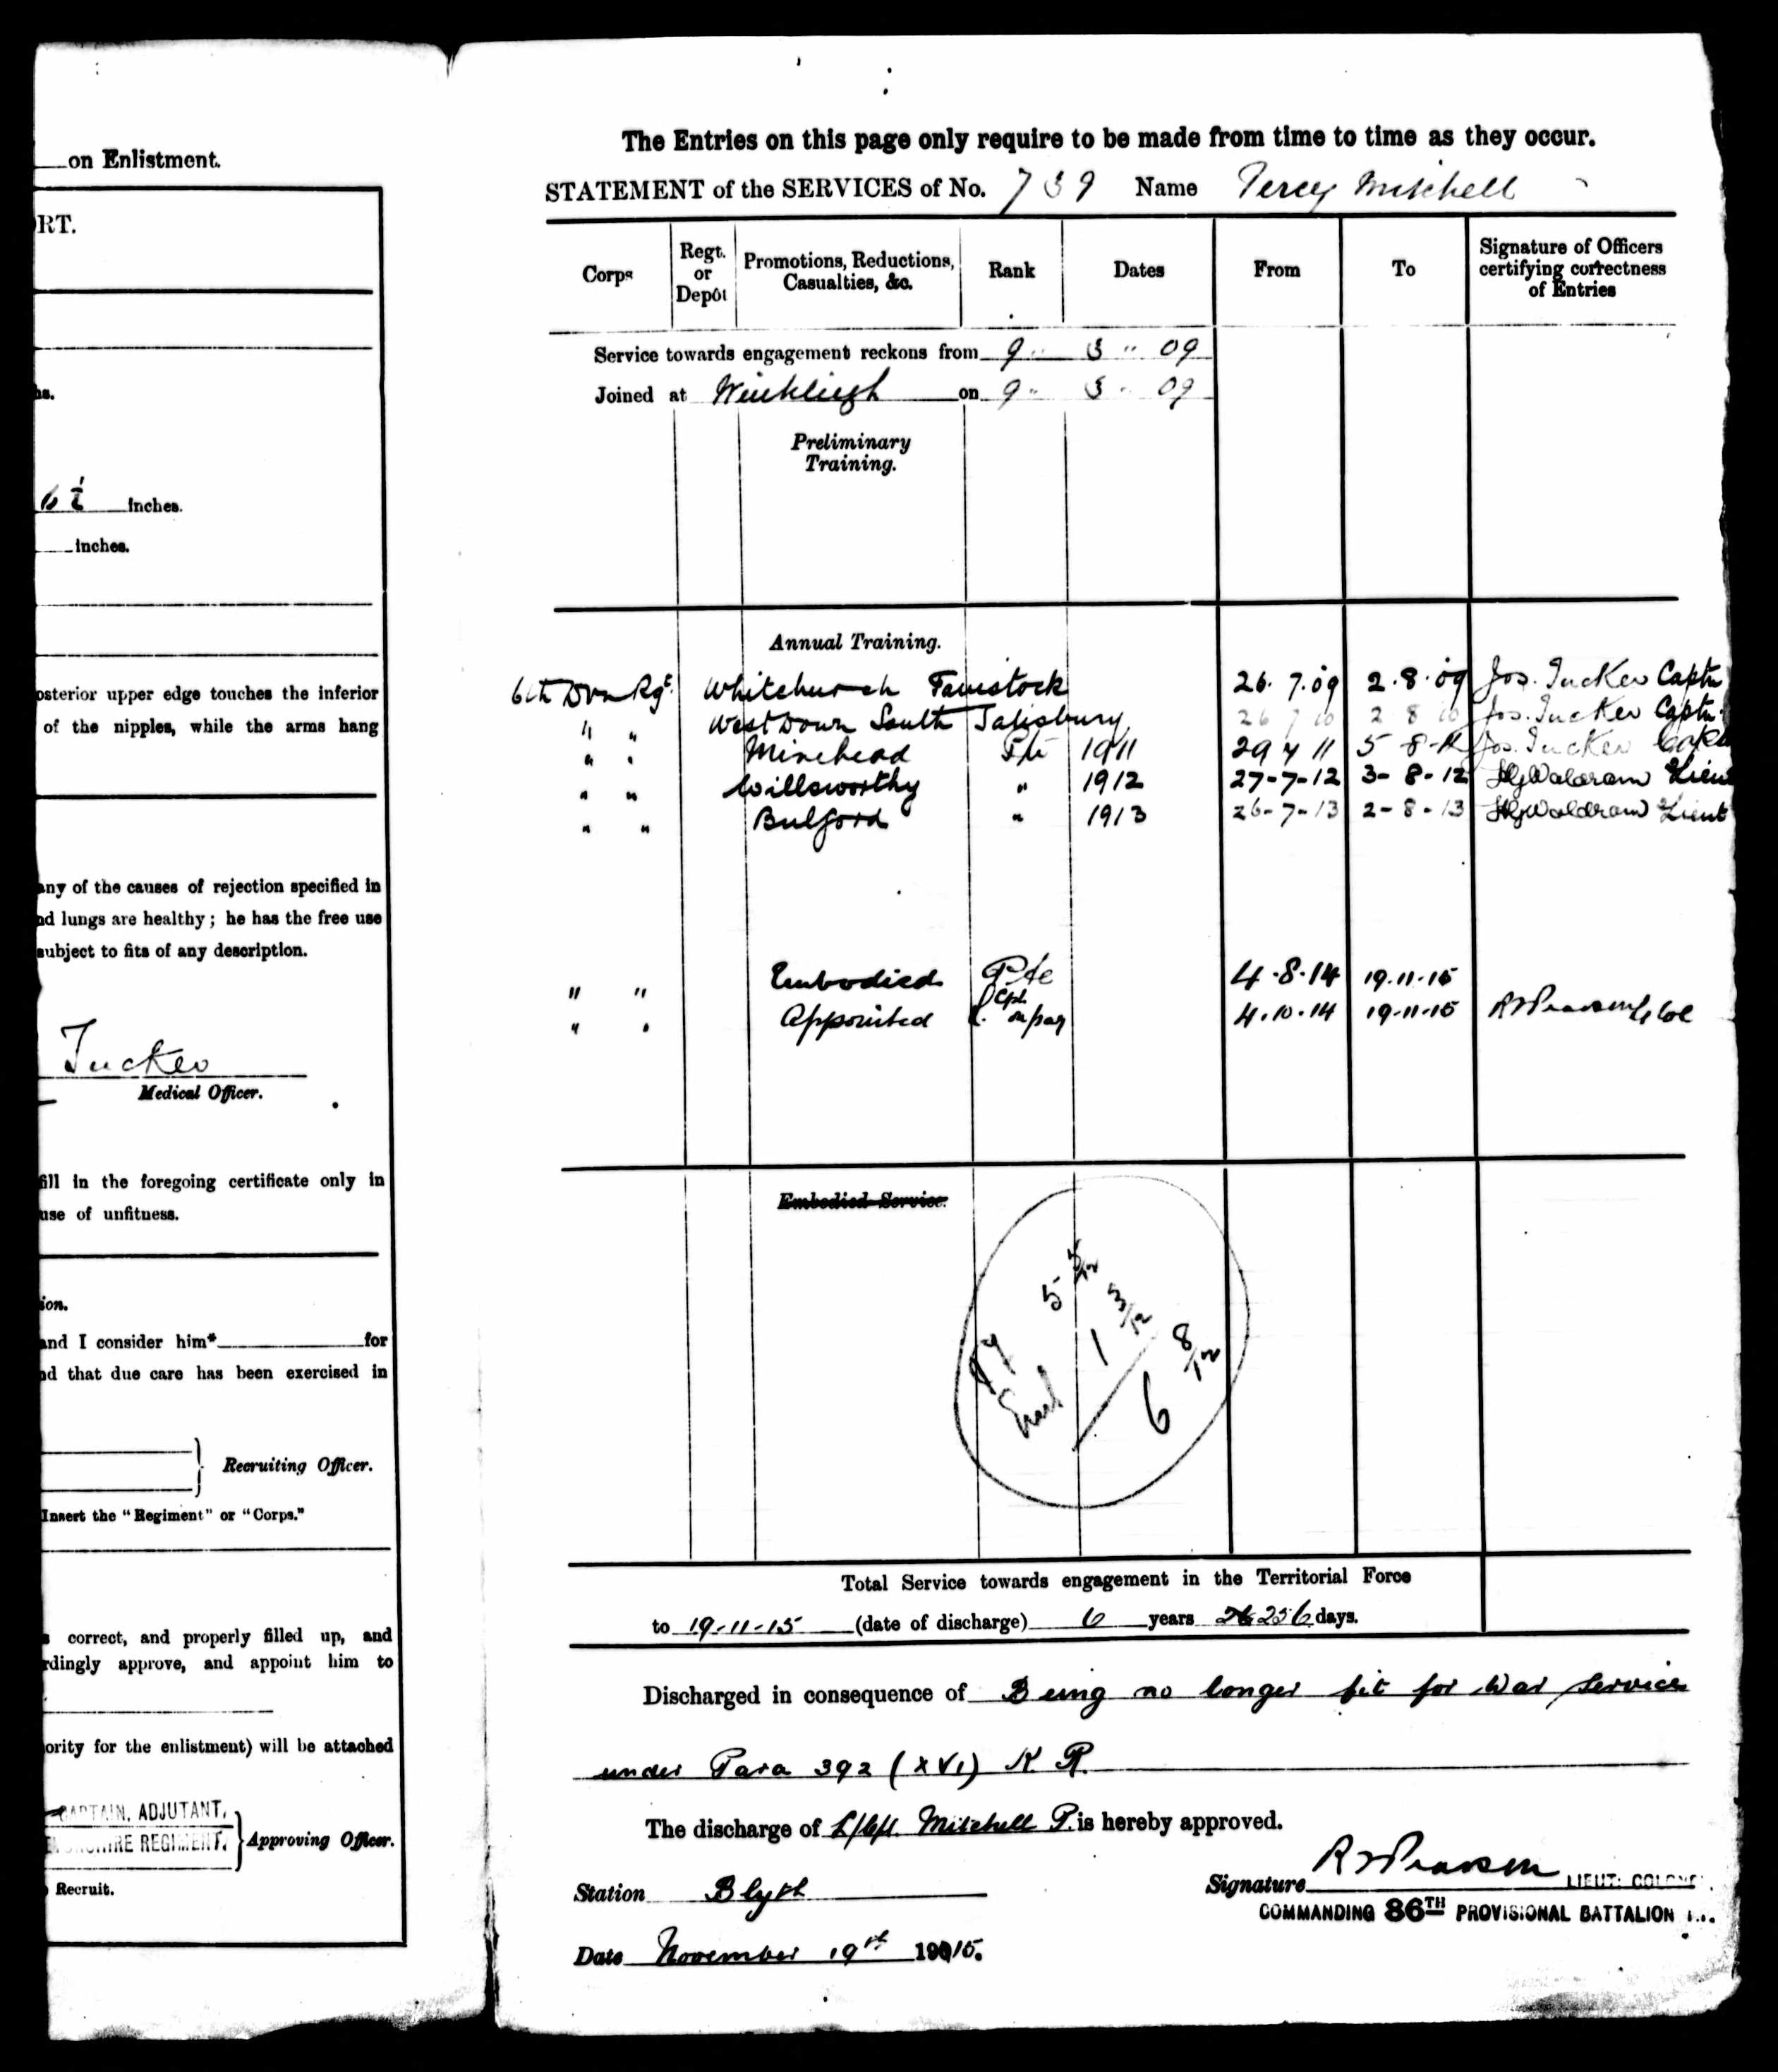 on Enlistment.
RT.
hs.
6 ½ inches.
inches.
osterior upper edge touches the inferior
of the nipples, while the arms hang
any of the causes of rejection specified in
nd lungs are healthy; he has the free use
subject to fits of any description.
Tucker
Medical Officer.
fill in the foregoing certificate only in
use of unfitness.
ion.
and I consider him* for
nd that due care has been exercised in
Recruiting Officer.
Insert the "Regiment" or "Corps."
s correct, and properly filled up, and
rdingly approve, and appoint him to
ority for the enlistment) will be attached
CAPTAIN, ADJUTANT,
SHIRE REGIMENT. Approving Officer.
Recruit.
The Entries on this page only require to be made from time to time as they occur.
STATEMENT of the SERVICES of No. 739 Name Percy Mitchell
Corps Regt. or Depôt Promotions, Reductions, Casualties, &c. Rank Dates From To Signature of Officers certifying correctness of Entries
Service towards engagement reckons from 9 " 3 " 09
Joined at Winkleigh on 9 " 3 " 09
Preliminary
Training.
Annual Training.
6th Dvn Rgt. Whitchurch Tavistock 26. 7. 09 2. 8. 09 Jos. Tucker Captn
" " West Down South Salisbury 26 7 10 2 8 10 Jos. Tucker Captn
" " Minehead Pte 1911 29 7 11 5-8-11 Jos. Tucker Captn
" " Willsworthy " 1912 27-7-12 3-8-12 Waldram Lieut
" " Bulford " 1913 26-7-13 2-8-13 Waldram Lieut
" " Embodied Pte 4.8.14 19.11.15
" " Appointed L. Cpl. on pay 4.10.14 19-11-15 R Pearson Lt Col
Embodied Service.
5 5/12
1 3/12
6 8/12
Total Service towards engagement in the Territorial Force
to 19-11-15 (date of discharge) 6 years 256 days.
Discharged in consequence of Being no longer fit for War Service
under Para 392 (XVI) K R.
The discharge of L/Cpl. Mitchell P. is hereby approved.
Station Blyth
Signature R Pearson LIEUT: COLONEL,
COMMANDING 86TH PROVISIONAL BATTALION
Date November 19th 1915.